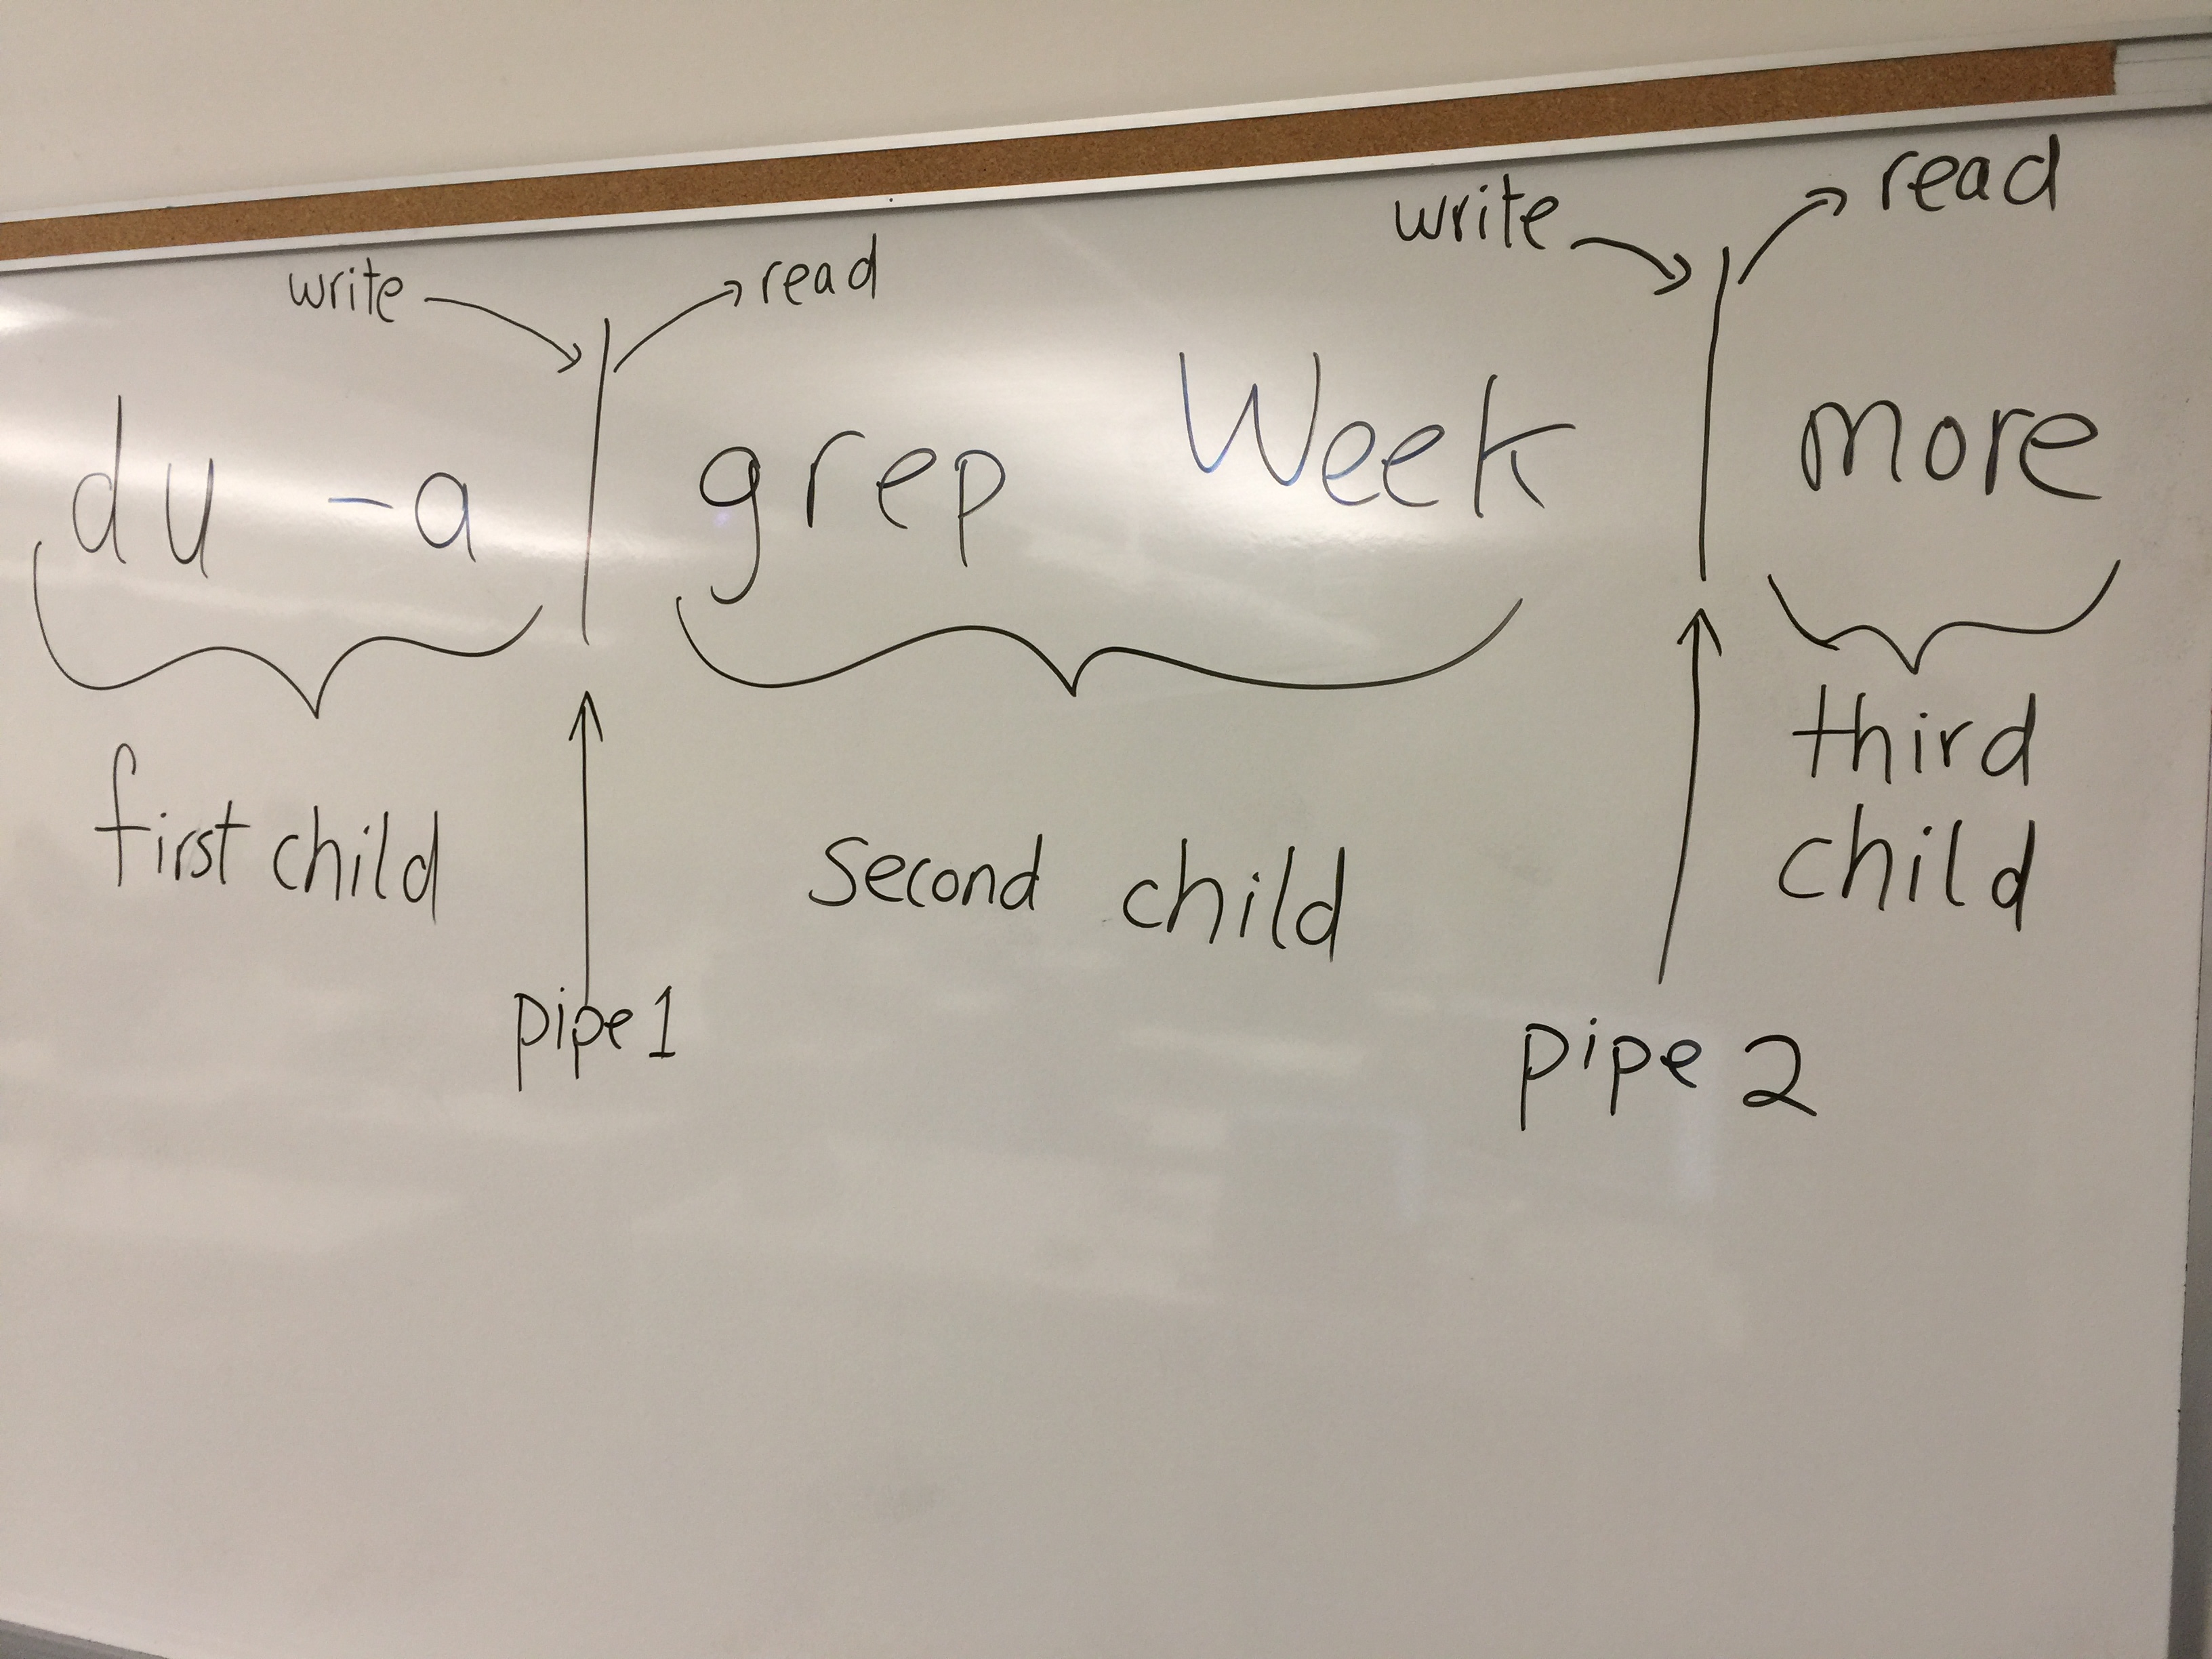 write read write read
du -a | grep Week | more
first child second child third child
pipe 1 pipe 2